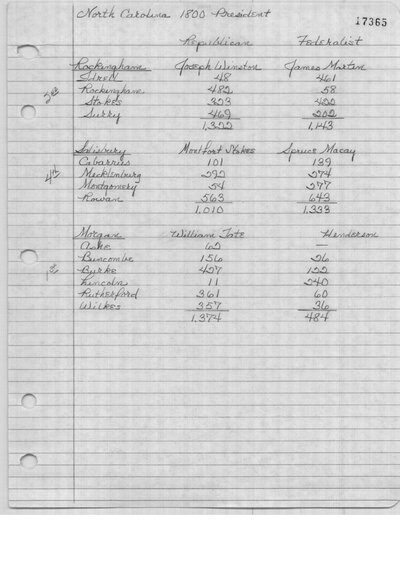 North Carolina 1800 President
17365
Republican Federalist
Rockingham Joseph Winston James Martin
Iredell 48 461
Rockingham 482 58
Stokes 323 422
Surry 469 202
1,322 1,143
Salisbury Montfort Stokes Spruce Macay
Cabarrus 101 139
Mecklenburg 292 274
4th
Montgomery 54 277
Rowan 563 643
1,010 1,333
Morgan William Tate Henderson
Ashe 62 —
Buncombe 156 26
Burke 427 122
Lincoln 11 240
Rutherford 361 60
Wilkes 357 36
1,374 484